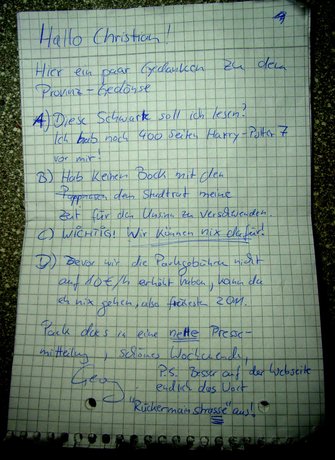 Hallo Christian!
Hier ein paar Gedanken zu dem
Provinz-Getöse
A) Diese Schwarte soll ich lesen?
Ich hab noch 400 Seiten Harry-Potter 7
vor mir!
B) Hab keinen Bock mit den
Pappnasen dem Stadtrat meine
Zeit für den Unsinn zu verschwenden.
C) WICHTIG! Wir können nix dafür!
D) Bevor wir die Parkgebühren nicht
auf 10€/h erhöht haben, kann da
eh nix gehen, also frühesten 2011.
Pack des in eine nette Presse-
mitteilung, schönes Wochenende,
Georg
P.S. Besser auf der Webseite
endlich das Wort
"Rückermainstrasse" aus!